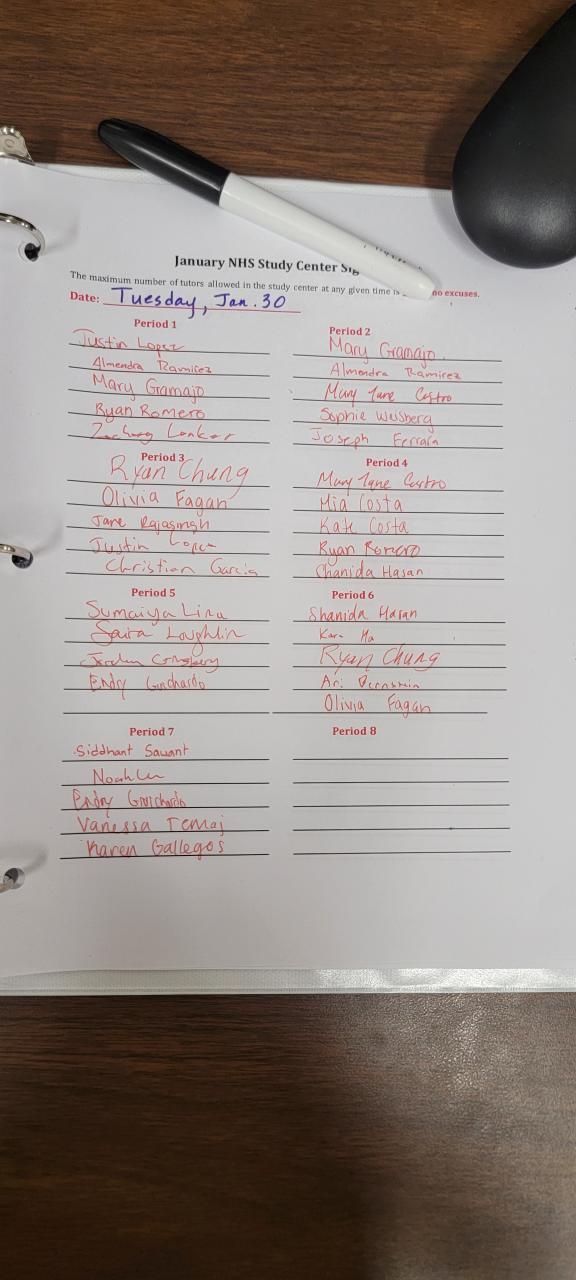 January NHS Study Center
The maximum number of tutors allowed in the study center at any given time is no excuses.
Date: Tuesday, Jan. 30
Period 1
Justin Lopez
Almendra Ramirez
Mary Gramajo
Ryan Romero
Zachary
Period 2
Mary Gramajo
Almendra Ramirez
Mary Jane Castro
Sophie Weisberg
Joseph Ferrara
Period 3
Ryan Chung
Olivia Fagan
Jane Rajasingh
Justin Lopez
Christian Garcia
Period 4
Mary Jane Castro
Mia Costa
Kate Costa
Ryan Romero
Chanida Hasan
Period 5
Sumaiya Lina
Saira Loughlin
Jordan
Endry Guichardo
Period 6
Shanida Hasan
Kara Ma
Ryan Chung
Ari Bernstein
Olivia Fagan
Period 7
Siddhant Sawant
Noah
Endry Guichardo
Vanessa Temaj
Karen Gallegos
Period 8